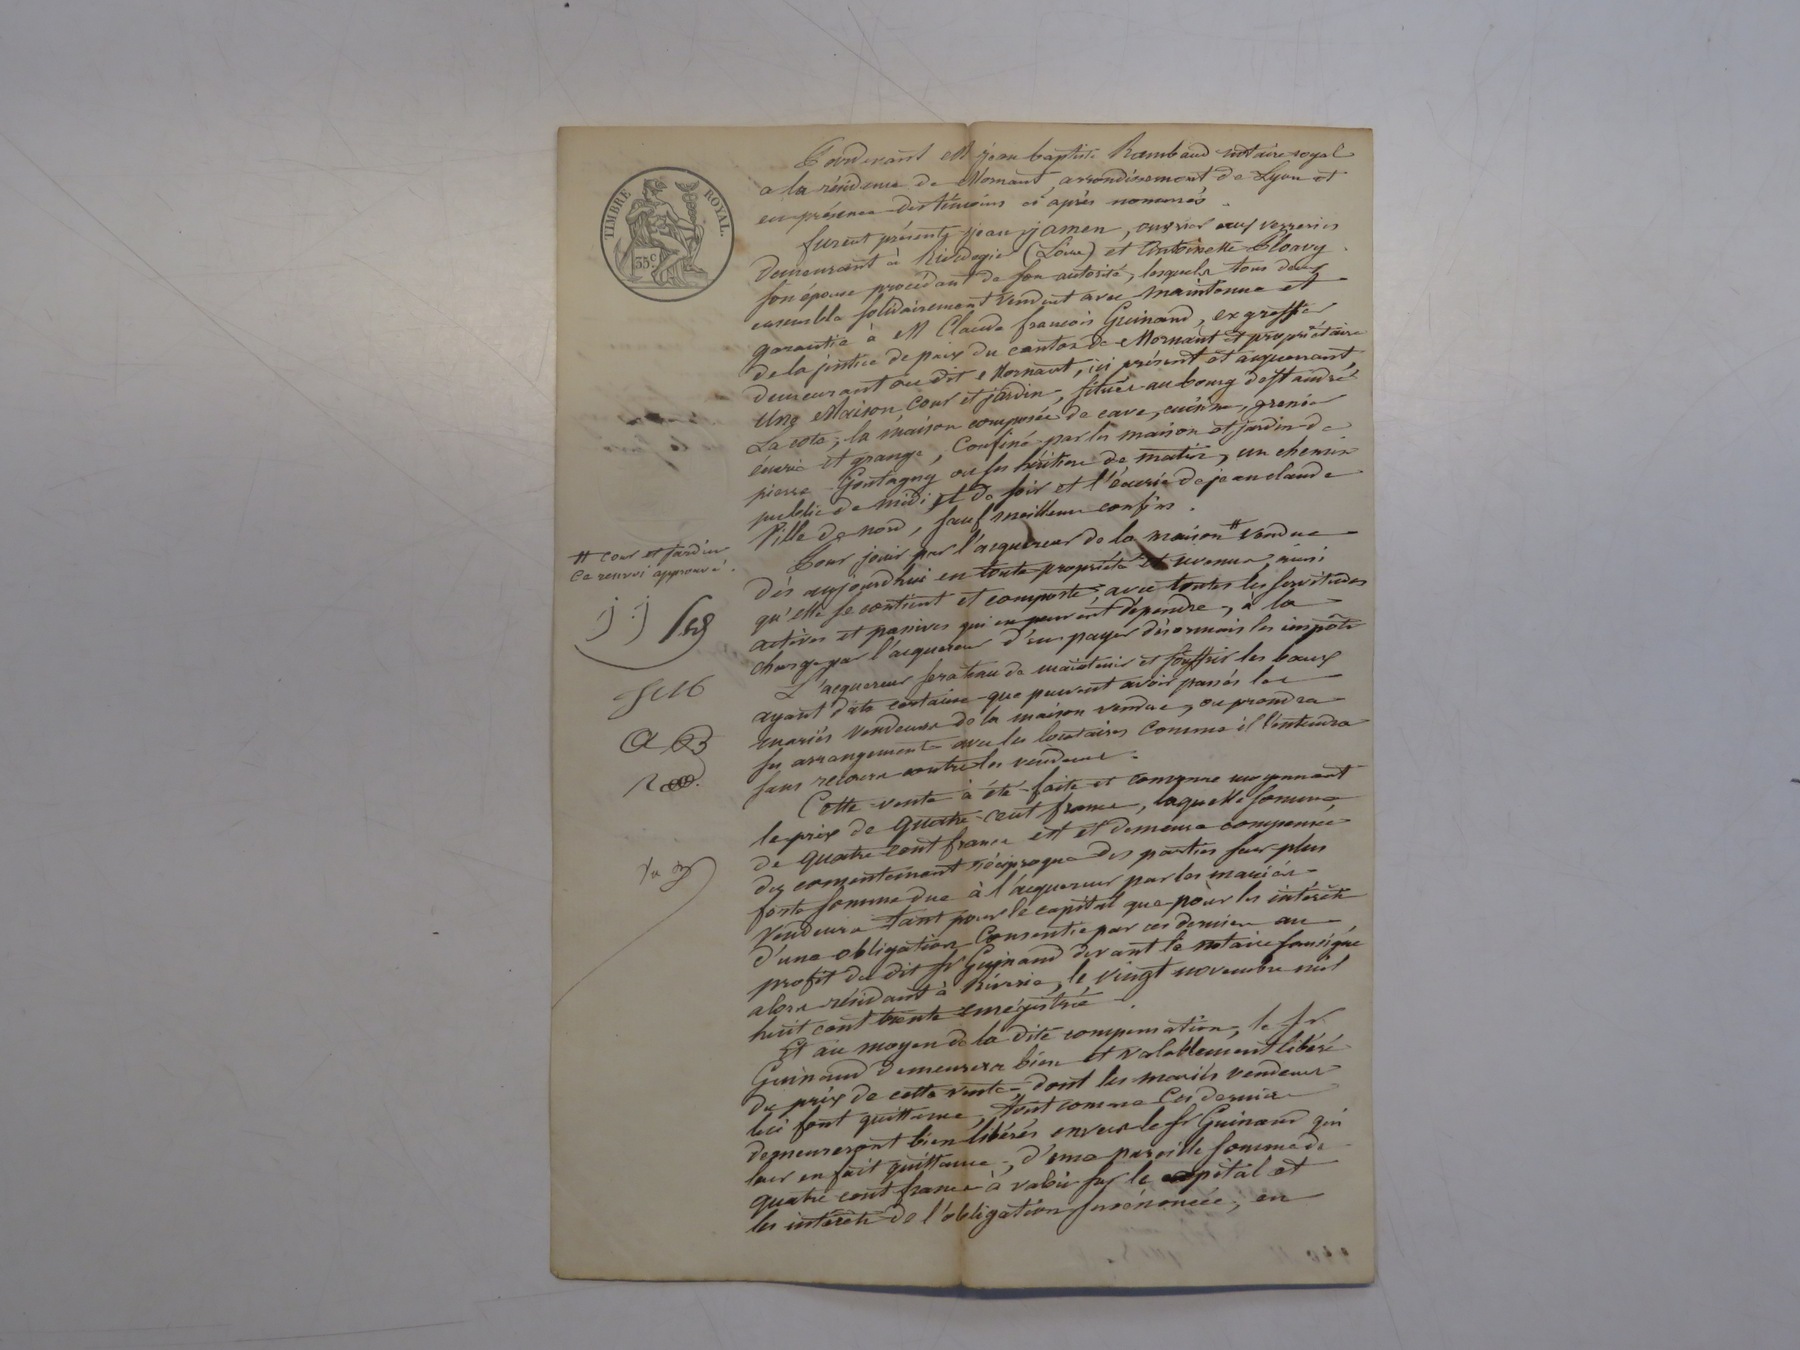 TIMBRE ROYAL.
35 c
Pardevant Me jean baptiste Rambaud notaire royal
a la résidence de Mornant, arrondissement de Lyon et
en présence des témoins ci après nommés.
furent présents jean jamen, ouvrier aux verreries
demeurant à Rivedegier (Loire) et Antoinette
son épouse procédant de son autorité, lesquels tous deux
ensemble solidairement vendent avec maintenue et
garantie à M Claude françois Guinand, ex greffier
de la justice de paix du canton de Mornant et propriétaire
demeurant au dit Mornant, ici présent et acquerant,
Une Maison Cour et jardin, située au bourg de St andré
La cote; la maison composée de cave, cuisine, grenier
écurie et grange, Confiné par les maison et jardin de
pierre ou ses héritiers de matin, un chemin
public de midi et de soir et l'écurie de jean claude
Ville de nord, sauf meilleurs confins.
Pour jouir par l'acquereur de la maison # vendue
dès aujourdhui en toute propriété et revenus, ainsi
qu'elle se contient et comporte avec toutes les servitudes
actives et passives qui en peuvent dépendre, a la
charge par l'acquereur d'en payer désormais les impôts
L'acquereur sera tenu de maintenir et souffrir les baux
ayant date certaine que peuvent avoir passés les
mariés vendeurs de la maison vendue, ou prendra
ses arrangements avec les locataires comme il l'entendra
sans recours contre les vendeurs.
Cette vente a été faite et convenue moyennant
le prix de quatre cent francs, laquelle somme
de quatre cent francs est et demeure compensée
du consentement réciproque des parties sur plus
forte somme due à l'acquereur par les mariés
vendeurs tant pour le capital que pour les intérêts
d'une obligation Consentie par ces derniers au
profit du dit Sr Guinand devant le notaire soussigné
alors résidant à Riverie, le vingt novembre mil
huit cent trente enregistrée.
Et au moyen de la dite compensation, le Sr
Guinand demeurera bien et valablement libéré
du prix de cette vente, dont les mariés vendeurs
lui font quittance, tout comme ces derniers
demeureront bien libérés envers le Sr Guinand qui
leur en fait quittance, d'une pareille somme de
quatre cent francs à valoir sur le capital et
les intérêts de l'obligation susénoncée, en
# cour et jardin
Ce renvoi approuvé.